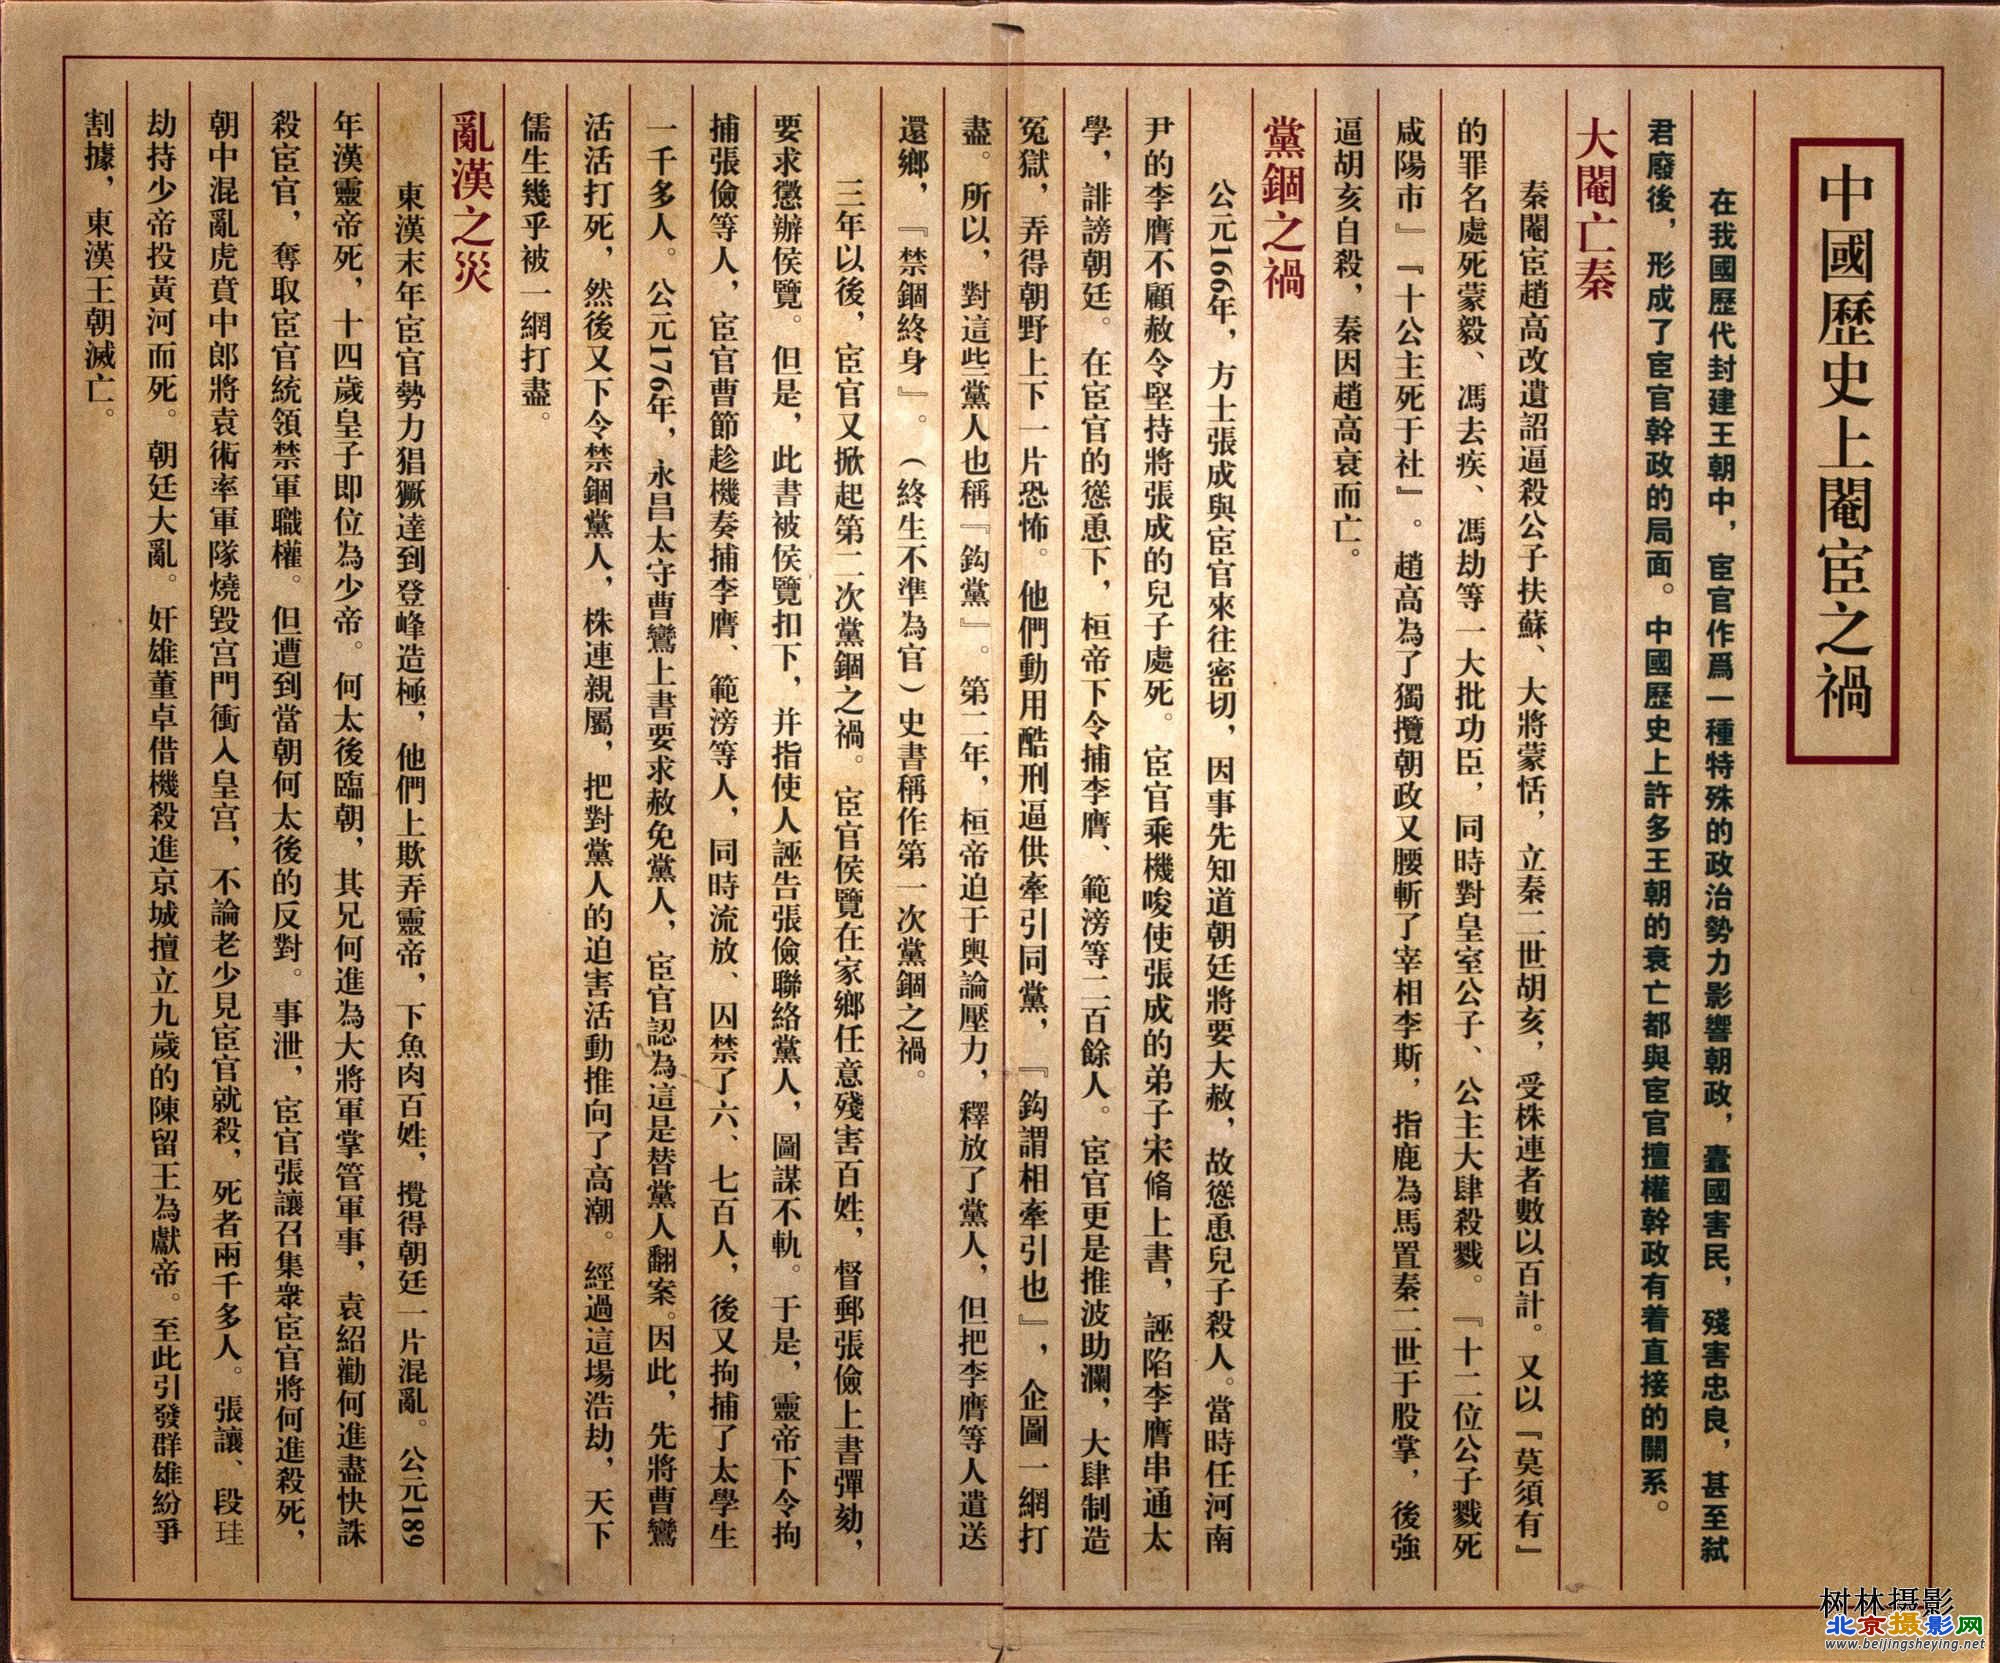 中國歷史上閹宦之禍
在我國歷代封建王朝中，宦官作爲一種特殊的政治勢力影響朝政，蠹國害民，殘害忠良，甚至弒
君廢後，形成了宦官幹政的局面。中國歷史上許多王朝的衰亡都與宦官擅權幹政有着直接的關系。
大閹亡秦
秦閹宦趙高改遺詔逼殺公子扶蘇、大將蒙恬，立秦二世胡亥，受株連者數以百計。又以『莫須有』
的罪名處死蒙毅、馮去疾、馮劫等一大批功臣，同時對皇室公子、公主大肆殺戮。『十二位公子戮死
咸陽市』『十公主死于社』。趙高為了獨攬朝政又腰斬了宰相李斯，指鹿為馬置秦二世于股掌，後強
逼胡亥自殺，秦因趙高衰而亡。
黨錮之禍
公元166年，方士張成與宦官來往密切，因事先知道朝廷將要大赦，故慫恿兒子殺人。當時任河南
尹的李膺不顧赦令堅持將張成的兒子處死。宦官乘機唆使張成的弟子宋脩上書，誣陷李膺串通太
學，誹謗朝廷。在宦官的慫恿下，桓帝下令捕李膺、範滂等二百餘人。宦官更是推波助瀾，大肆制造
冤獄，弄得朝野上下一片恐怖。他們動用酷刑逼供牽引同黨，『鈎謂相牽引也』，企圖一網打
盡。所以，對這些黨人也稱『鈎黨』。第二年，桓帝迫于輿論壓力，釋放了黨人，但把李膺等人遣送
還鄉，『禁錮終身』。（終生不準為官）史書稱作第一次黨錮之禍。
三年以後，宦官又掀起第二次黨錮之禍。宦官侯覽在家鄉任意殘害百姓，督郵張儉上書彈劾，
要求懲辦侯覽。但是，此書被侯覽扣下，并指使人誣告張儉聯絡黨人，圖謀不軌。于是，靈帝下令拘
捕張儉等人，宦官曹節趁機奏捕李膺、範滂等人，同時流放、囚禁了六、七百人，後又拘捕了太學生
一千多人。公元176年，永昌太守曹鸞上書要求赦免黨人，宦官認為這是替黨人翻案。因此，先將曹鸞
活活打死，然後又下令禁錮黨人，株連親屬，把對黨人的迫害活動推向了高潮。經過這場浩劫，天下
儒生幾乎被一網打盡。
亂漢之災
東漢末年宦官勢力猖獗達到登峰造極，他們上欺弄靈帝，下魚肉百姓，攪得朝廷一片混亂。公元189
年漢靈帝死，十四歲皇子即位為少帝。何太後臨朝，其兄何進為大將軍掌管軍事，袁紹勸何進盡快誅
殺宦官，奪取宦官統領禁軍職權。但遭到當朝何太後的反對。事泄，宦官張讓召集衆宦官將何進殺死，
朝中混亂虎賁中郎將袁術率軍隊燒毀宫門衝入皇宫，不論老少見宦官就殺，死者兩千多人。張讓、段珪
劫持少帝投黃河而死。朝廷大亂。奸雄董卓借機殺進京城擅立九歲的陳留王為獻帝。至此引發群雄紛爭
割據，東漢王朝滅亡。
树林摄影
北京摄影网
www.beijingsheying.net